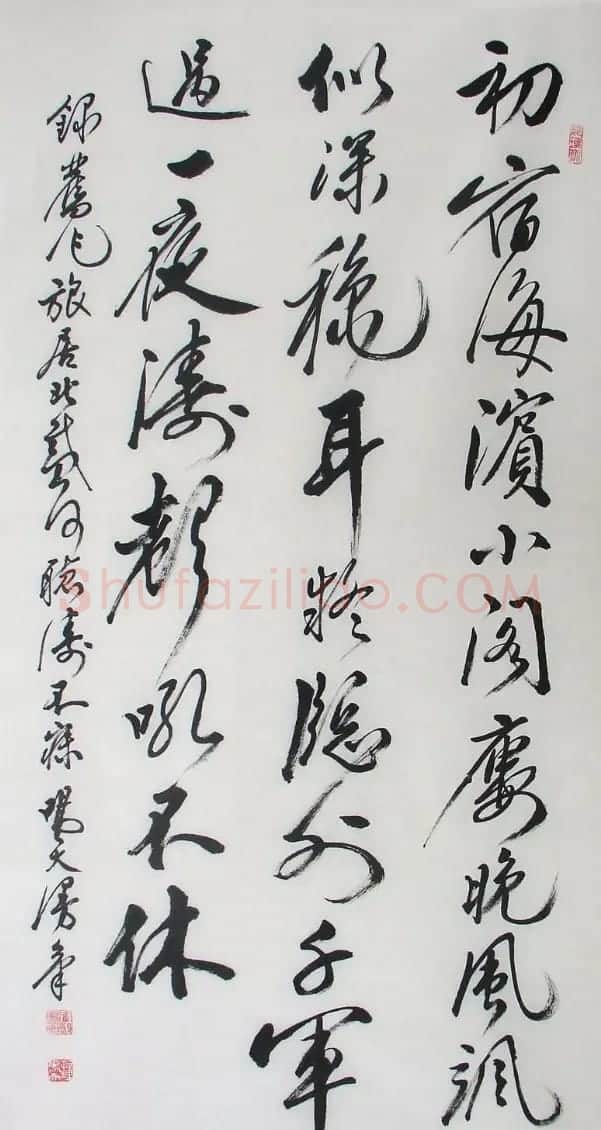 初宿海濱小閣廔晚風颯
似深穐耳聆牕外千軍
過一夜濤聲吼不休
錄舊作旅居北戴河聽濤不寐
Shufaziliao.com